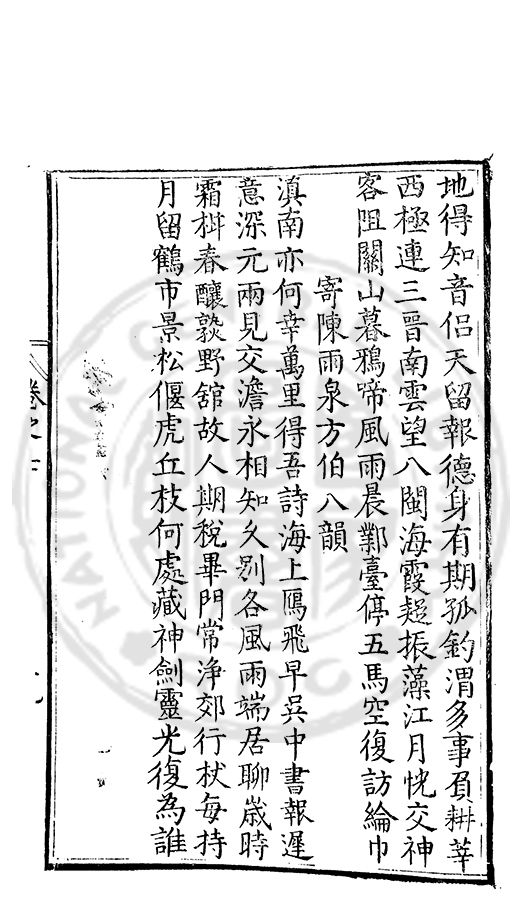 地得知音侣天留報德身有期孤釣渭多事負耕莘
西極連三晉南雲望八閩海霞趍振藻江月恍交神
客阻關山暮鴉啼風雨晨鄴臺停五馬空復訪綸巾
寄陳雨泉方伯八韻
滇南亦何幸萬里得吾詩海上鴈飛早吳中書報遲
意深元兩見交澹永相知久别各風雨端居聊歲時
霜柑春釀熟野舘故人期稅畢門常浄郊行杖每持
月留鶴市景松偃虎丘枝何處藏神劍靈光復為誰
卷之下
NATIONAL C